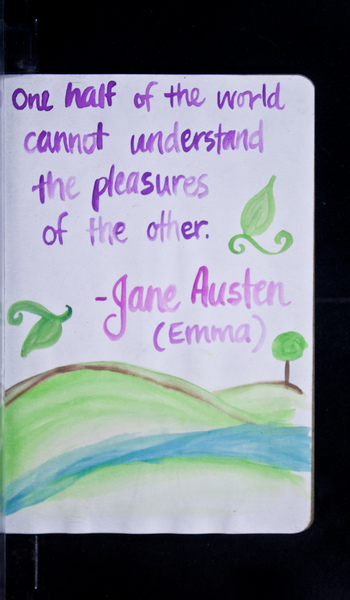 One half of the world
cannot understand
the pleasures
of the other.
-Jane Austen
(Emma)